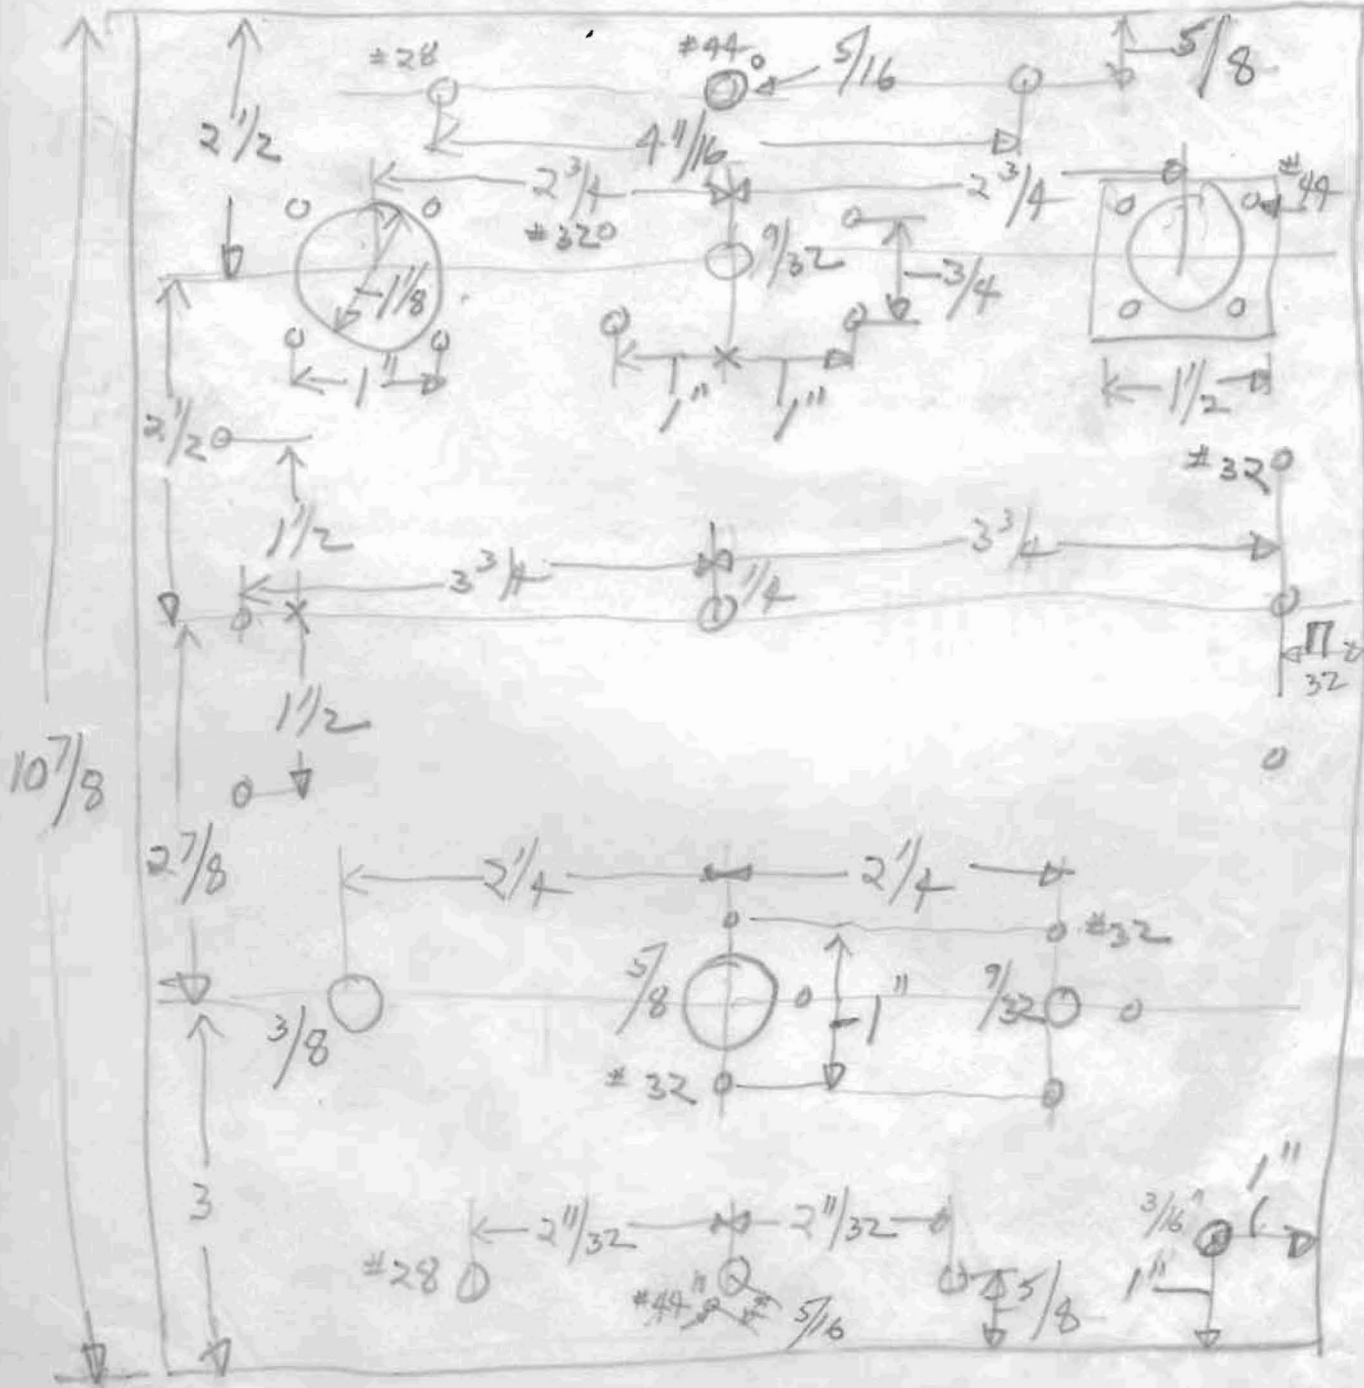 #28
#44
5/16
5/8
2 1/2
4 11/16
2 3/4
2 3/4
#44
#32
9/32
3/4
1 1/8
1"
1"
1"
1 1/2
2 1/2
#32
1 1/2
3 3/4
3 3/4
1/4
32
1 1/2
10 7/8
2 7/8
2 1/4
2 1/4
#32
5/8
1"
9/32
3/8
#32
3
2 11/32
2 11/32
3/16"
1"
#28
#44
5/16
5/8
1"